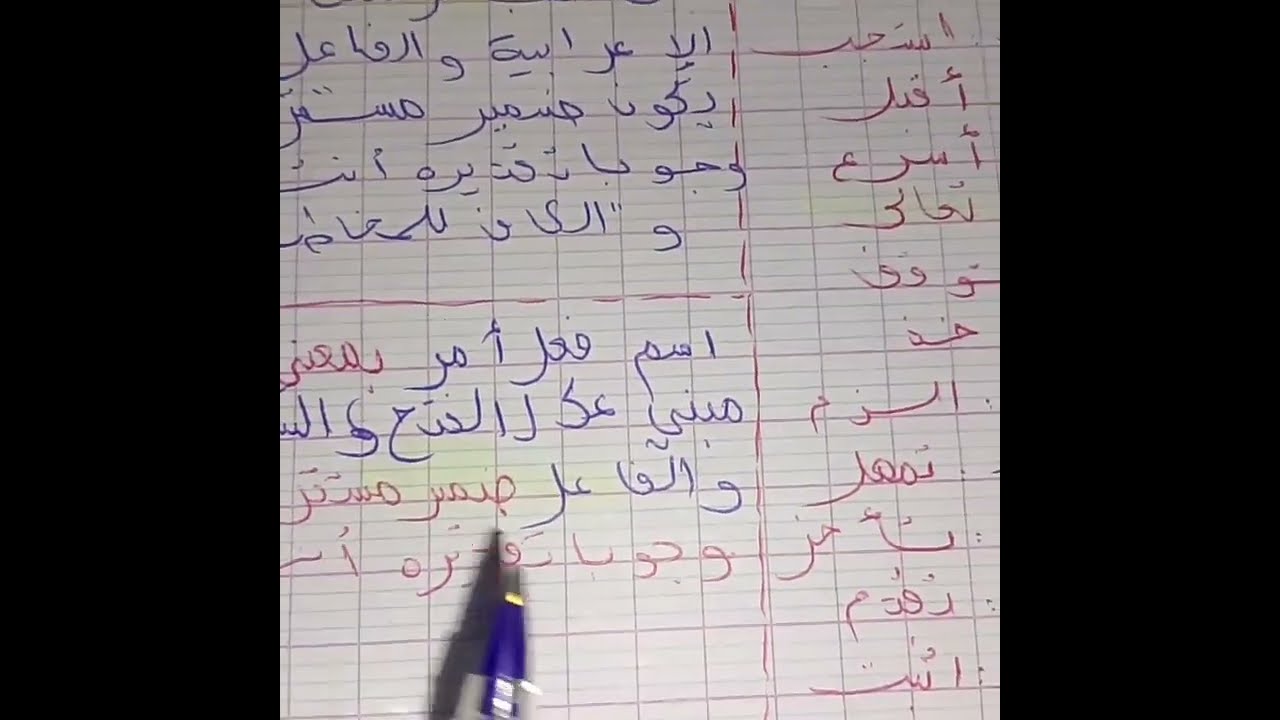 : استجب
أقبل
أسرع
تعالى
توقف
خذ
: الزم
: تمهل
: تأخر
: تقدم
: اثبت
الإعرابية والفاعل
يكون ضمير مستتر
وجوبا تقديره أنت
و "الكاف للخاطب
اسم فعل أمر بمعنى
مبني على الفتح
والفاعل ضمير مستتر
وجوبا تقديره